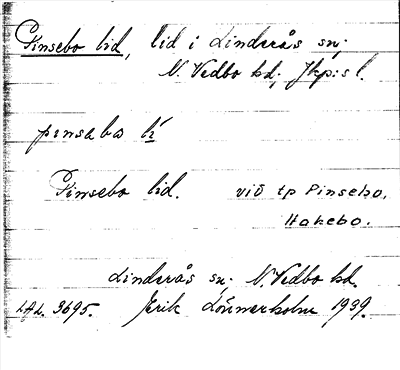 Pinsebo lid, lid i Linderås sn;
N. Vedbo hd; Jkp:s l.
pinsabo lí
Pinsebo lid. vid tp Pinsebo,
Hakebo.
Linderås sn; N. Vedbo hd.
LAL. 3695. Erik Lönnerholm 1939.